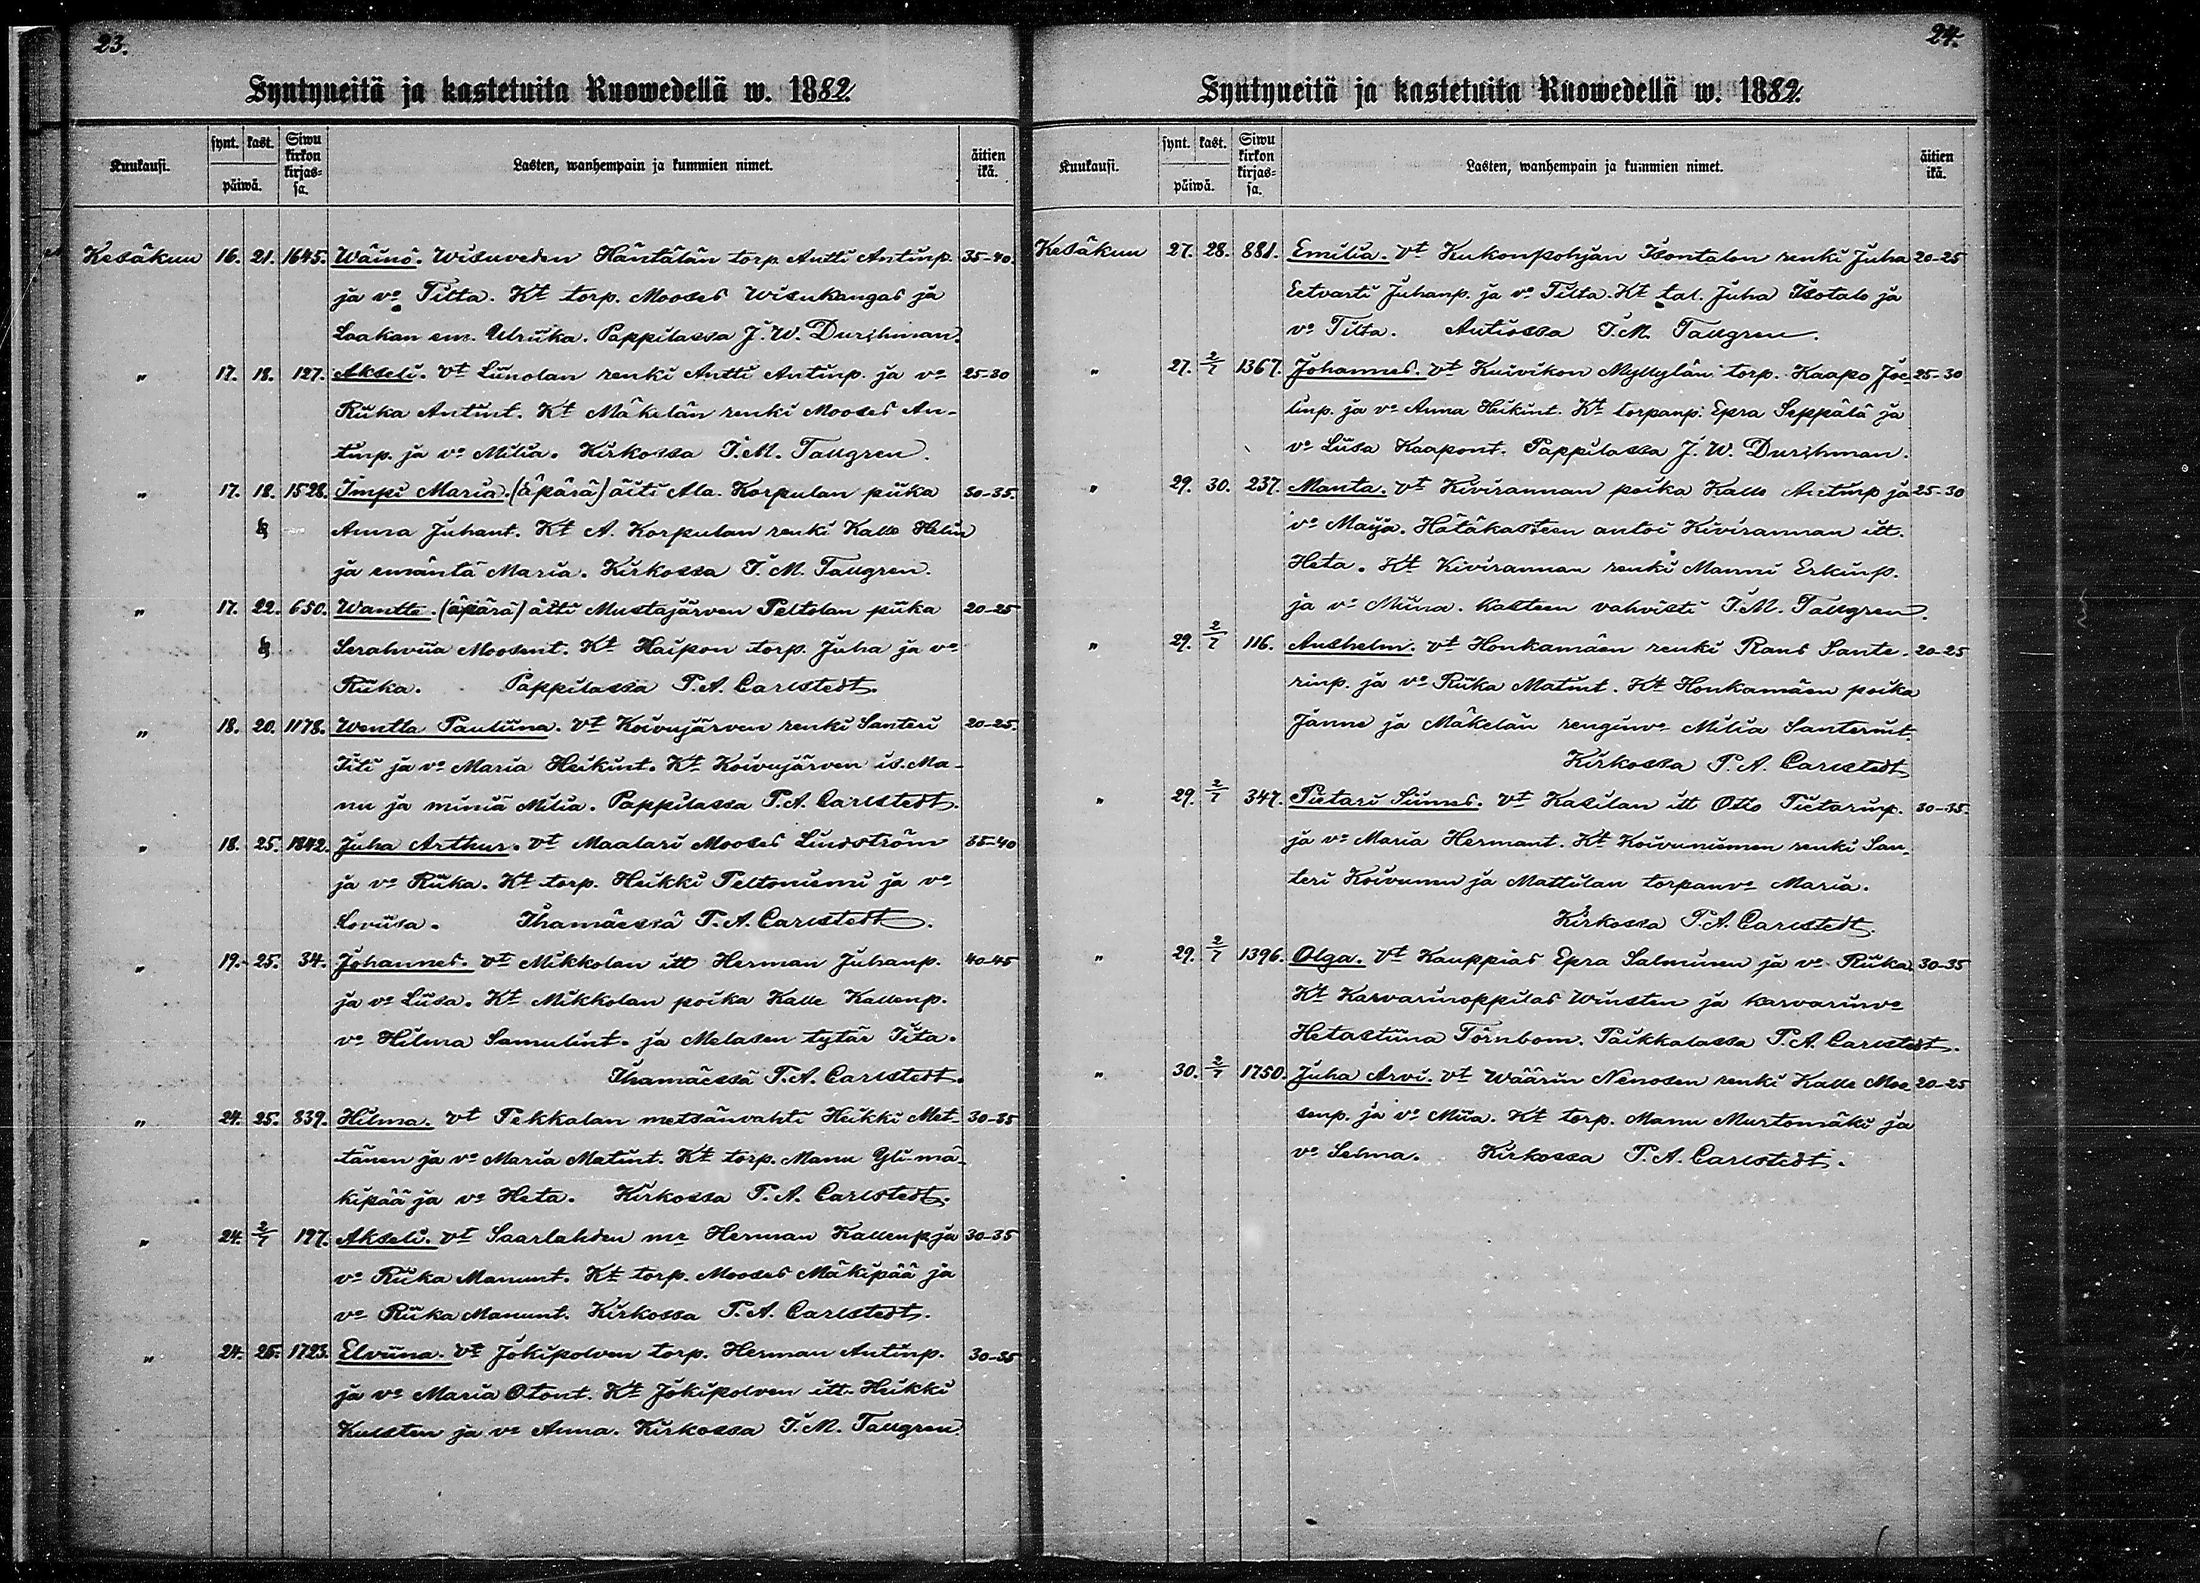 23.
Syntyneitä ja kastetuita Ruowedellä w. 1882.
Kuukausi. synt. kast. päiwä. Siwu kirkon kirjas=sa. Lasten, wanhempain ja kummien nimet. äitien ikä.
Kesäkuu 16. 21. 1645. Wäinö. Wisuveden Häntälän torp. Antti Antinp. 35-40.
ja vo Tilta. Kt torp. Mooses Wisukangas ja
Laakan em. Ulriika. Pappilassa J. W. Durchman.
" 17. 18. 127. Akseli. Vt Liinolan renki Antti Antinp. ja vo 25-30
Riika Antint. Kt Mäkelän renki Mooses An-
tinp. ja vo Milia. Kirkossa I. M. Tallgren.
" 17. 18. 1528. Impi Maria. (äpärä) äiti Ala. Korpulan piika 30-35.
Anna Juhant. Kt A. Korpulan renki Kalle Helin
ja emäntä Maria. Kirkossa I. M. Tallgren.
" 17. 22. 650. Wantte. (äpärä) äiti Mustajärven Peltolan piika 20-25
Serahviia Moosent. Kt Haipon torp. Juha ja vo
Riika. Pappilassa T. A. Carlstedt.
" 18. 20. 1178. Wentla Pauliina. Vt Koivujärven renki Santeri 20-25.
Iiti ja vo Maria Heikint. Kt Koivujärven is. Ma-
nu ja miniä Milia. Pappilassa T. A. Carlstedt.
" 18. 25. 1842. Juha Arthur. Vt Maalari Mooses Lindström 35-40
ja vo Riika. Kt torp. Heikki Peltoniemi ja vo
Loviisa. Ihamäessä T. A. Carlstedt.
" 19. 25. 34. Johannes. Vt Mikkolan itt Herman Juhanp. 40-45
ja vo Liisa. Kt Mikkolan poika Kalle Kallenp.
vo Hilma Samulint. ja Melasen tytär Iita.
Ihamäessä T. A. Carlstedt.
" 24. 25. 839. Hilma. Vt Pekkalan metsänvahti Heikki Met- 30-35
tänen ja vo Maria Matint. Kt torp. Manu Yli-mä-
kipää ja vo Heta. Kirkossa T. A. Carlstedt.
" 24. 2/7 197. Akseli. Vt Saarlahden mr Herman Kallenp. ja 30-35
vo Riika Manunt. Kt torp. Mooses Mäkipää ja
vo Riika Manunt. Kirkossa T. A. Carlstedt.
" 24. 25. 1723. Elviina. Vt Jokipolven torp. Herman Antinp. 30-35
ja vo Maria Otont. Kt Jokipolven itt. Heikki
Kuusten ja vo Anna. Kirkossa I. M. Tallgren.
24.
Syntyneitä ja kastetuita Ruowedellä w. 1882.
Kuukausi. synt. kast. päiwä. Siwu kirkon kirjas=sa. Lasten, wanhempain ja kummien nimet. äitien ikä.
Kesäkuu 27. 28. 881. Emilia. Vt Kukonpohjan Isontalon renki Juha 20-25
Eetvarti Juhanp. ja vo Tilta. Kt tal. Juha Isotalo ja
vo Tilta. Autiossa I. M. Tallgren.
" 27. 2/7 1367. Johannes. Vt Kuivikon Myllylän torp. Kaapo Joe- 25-30
linp. ja vo Anna Heikint. Kt torpanp. Epra Seppälä ja
vo Liisa Kaapont. Pappilassa J. W. Durchman.
" 29. 30. 237. Manta. Vt Kivirannan poika Kalle Antinp ja 25-30
vo Maija. Hätäkasteen antoi Kivirannan itt.
Heta. Kt Kivirannan renki Manni Erkinp.
ja vo Miina. Kasteen vahvisti I. M. Tallgren.
" 29. 2/7 116. Anshelm. Vt Honkamäen renki Rans Sante- 20-25
rinp. ja vo Riika Matint. Kt Honkamäen poika
Janne ja Mäkelän renginvo Milia Santerint.
Kirkossa T. A. Carlstedt
" 29. 2/7 347. Pietari Siimes. Vt Kasilan itt Otto Pietarinp. 30-35.
ja vo Maria Hermant. Kt Koivuniemen renki San-
teri Koivunen ja Mattilan torpanvo Maria.
Kirkossa T. A. Carlstedt.
" 29. 2/7 1396. Olga. Vt Kauppias Epra Salminen ja vo Riika 30-35
Kt Karvarinoppilas Winsten ja karvarinvo
Hetastiina Törnbom. Paikkalassa T. A. Carlstedt.
" 30. 2/7 1750. Juha Arvi. Vt Wäärin Nenosen renki Kalle Moo- 20-25
senp. ja vo Miia. Kt torp. Manu Murtomäki ja
vo Selma. Kirkossa T. A. Carlstedt.